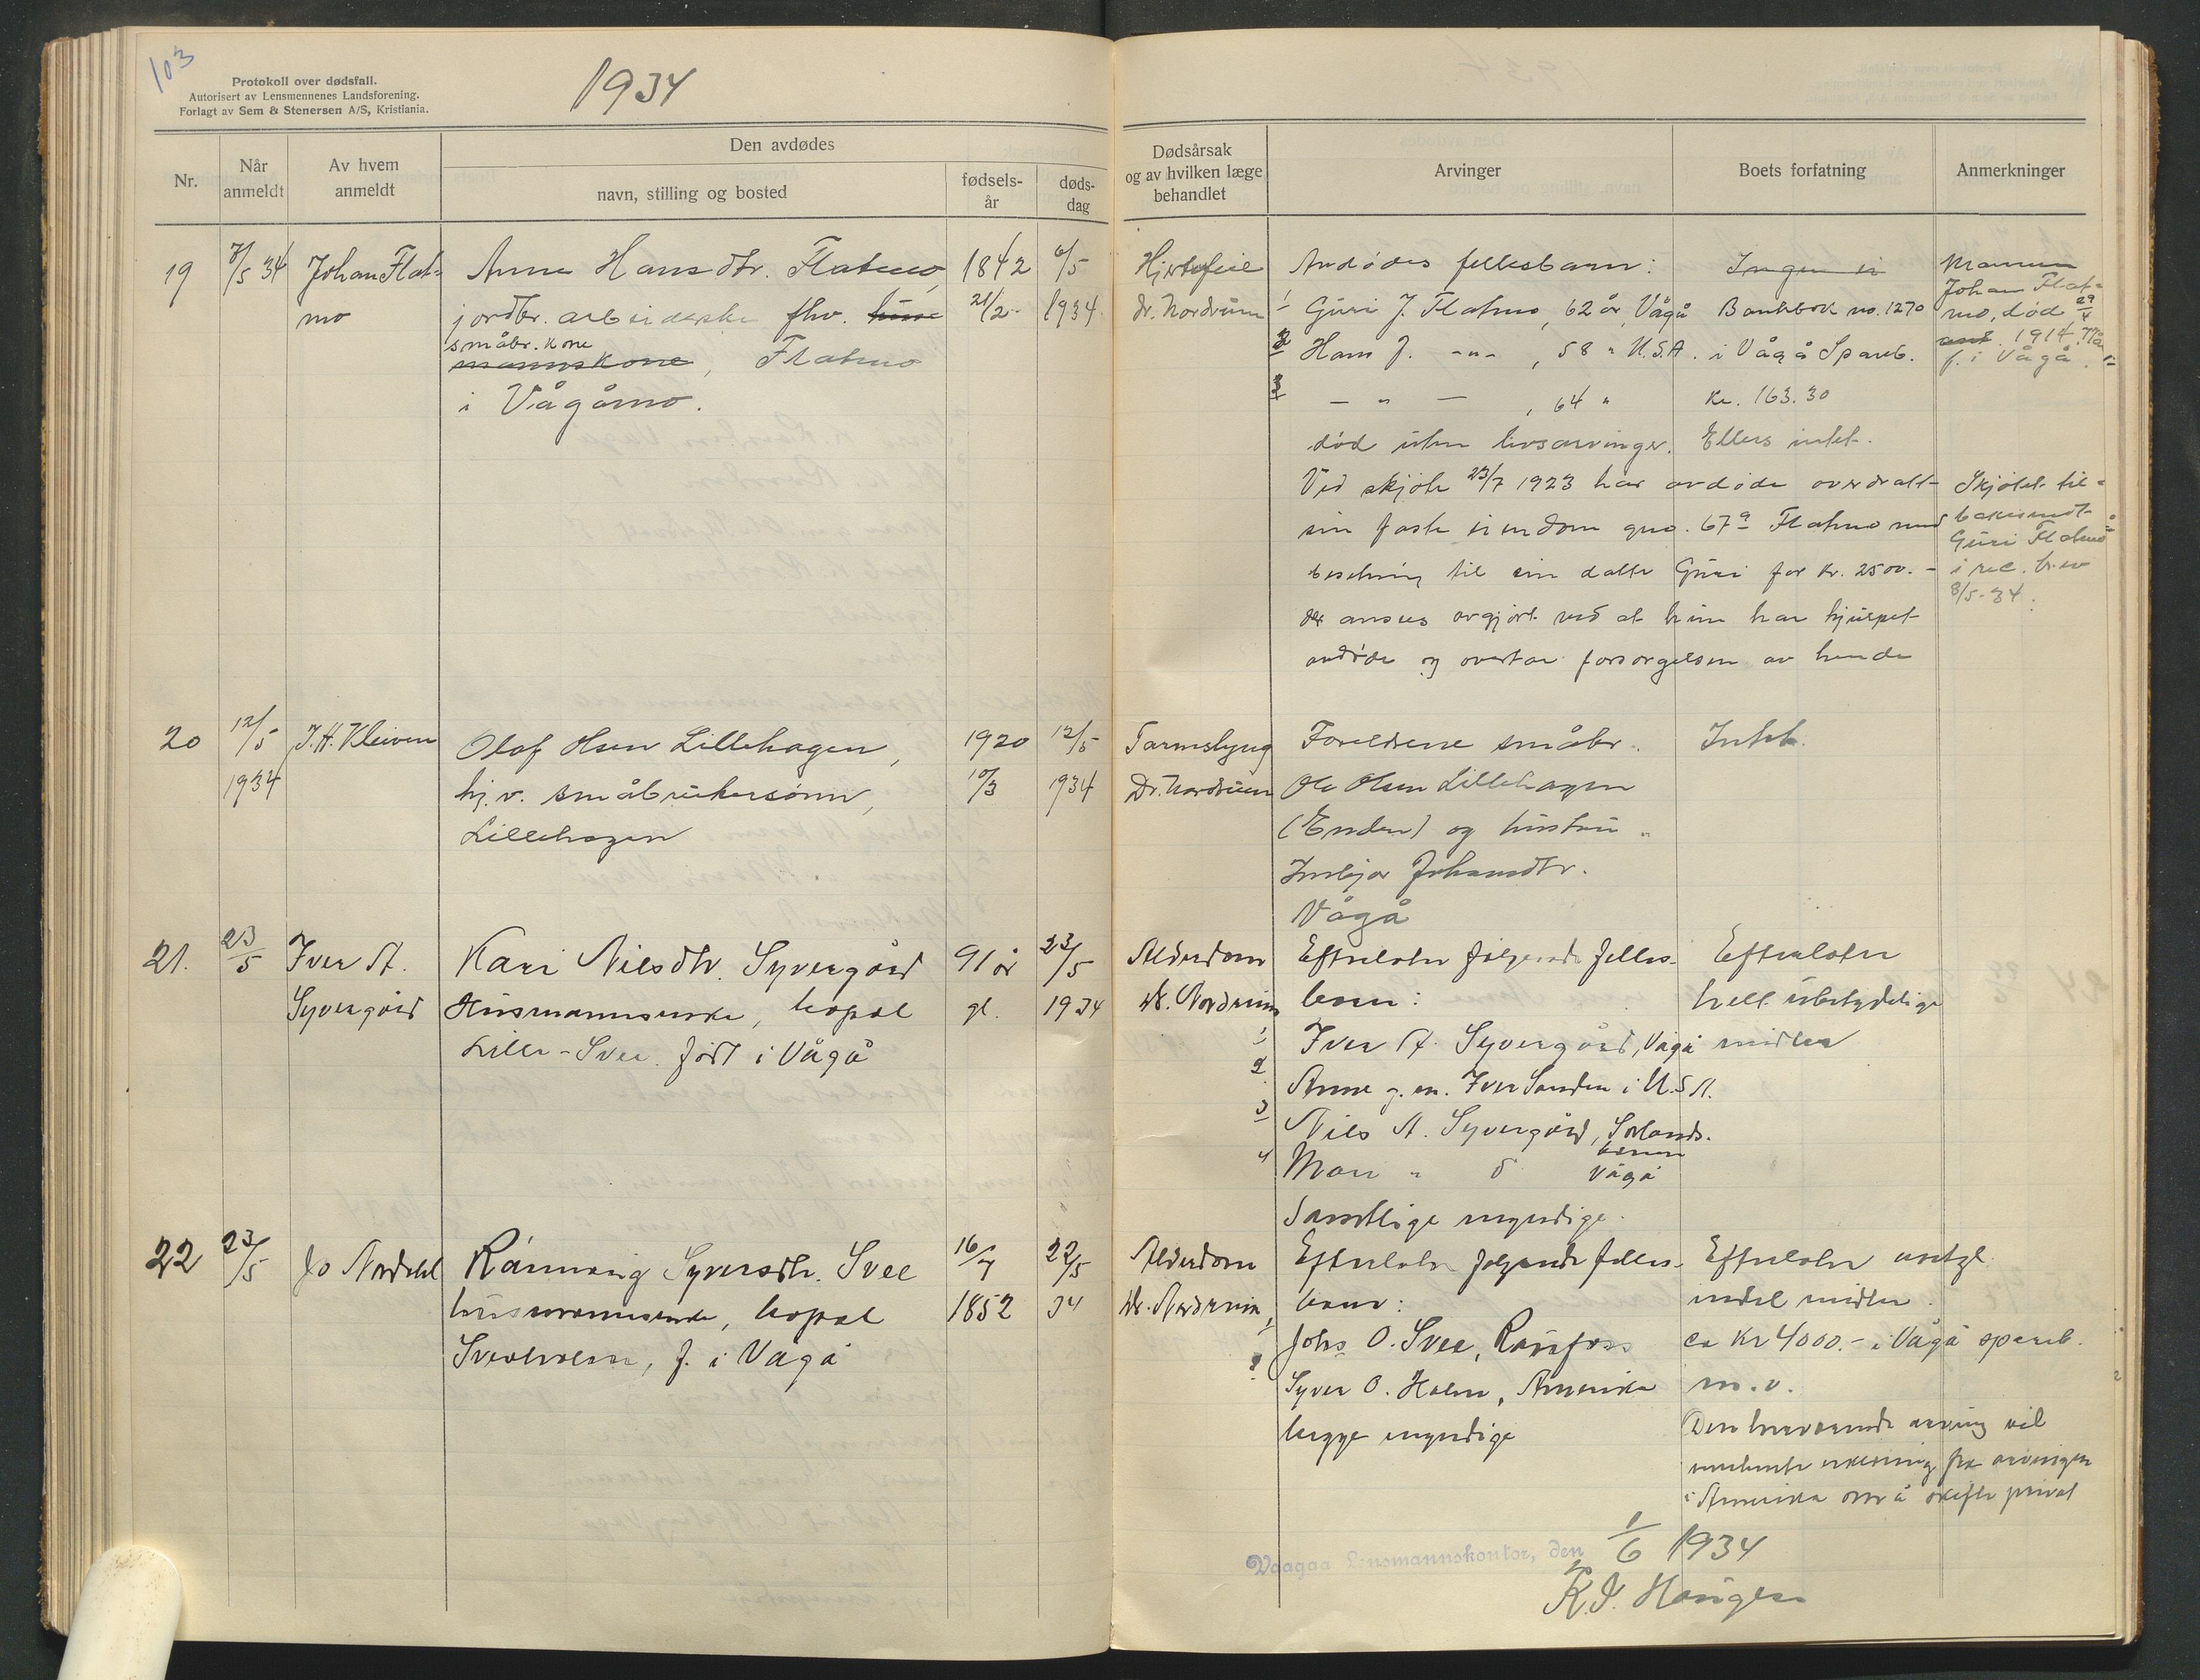 103
Protokoll over dødsfall.
Autorisert av Lensmennenes Landsforening.
Forlagt av Sem & Stenersen A/S, Kristiania.
1934
Nr.
Når anmeldt
Av hvem anmeldt
Den avdødes
navn, stilling og bosted
fødsels-år
døds-dag
Dødsårsak og av hvilken læge behandlet
Arvinger
Boets forfatning
Anmerkninger
19
7/5 34
Johan Flat-
mo
Anne Hansdtr. Flatmo,
jordbr. arbeiderske fhv.
småbr. kone
mannskone, Flatmo
i Vågåmo.
1842
21/2-
6/5
1934
Hjertefeil
dr. Nordrum
Avdødes fellesbarn:
1 Guri J. Flatmo, 62 år, Vågå
2 Hans J. -"- , 58 " U.S.A.
3 - " - , 64 "
død uten livsarvinger.
Ingen ei
Bankbok no. 1270
i Vågå Spareb.
Kr. 163.30
Ellers intet.
Mannen
Johan Flat-
mo, død 29/4
1914
f. i Vågå.
Ved skjøte 23/7 1923 har avdøde overdratt
sin faste eiendom gno. 67 9 Flatmo med
besetning til sin datter Guri for kr. 2500.-
der anses avgjort ved at hun har hjulpet
avdøde og overtar forsørgelsen av hende
Skjøtet til-
bakesendt
Guri Flatmo
i rec. brev
8/5-34.
20
12/5
1934
J.H. Kleiven
Olaf Olsen Lillehagen,
hj.v. småbrukersønn,
Lillehagen
1920
10/3
12/5
1934
Tarmslyng
Dr. Nordrum
Foreldrene småbr.
Ole Olsen Lillehagen
(Enden) og hustru
Imbjør Johansdtr.
Vågå
Intet.
21.
23/5
Iver A.
Syvergård
Kari Nilsdtr. Syvergård
Husmannsenke, kopal
Lille-Svee. født i Vågå
91 år
gl.
23/5
1934
Alderdom
dr. Nordrum
Efterlater følgende felles-
barn:
1 Iver A. Syvergård, Vågå
2 Anne g. m. Iver Sanden i U.S.A.
3 Nils A. Syvergård,
4 Mari " d Vågå
Samtlige myndige.
Efterlater
helt ubetydelige
midler
22
23/5
Jo Nordahl
Rannveig Syversdtr. Svee
husmannsenke, kopal
Sveeholm, f. i Vågå
16/7
1852
22/5
34
Alderdom
dr. Nordrum
Efterlater følgende felles-
barn:
1 Johs O. Svee, Raufoss
2 Syver O. Holm, Amerika
begge myndige
Efterlater
endel midler.
ca Kr 4000.- i Vågå spareb.
m.v.
Den herværende arving vil
innhente erklæring fra arvingen
i Amerika om å skifte privat
Vaagaa Lensmannskontor, den 1/6 1934
K.I. Haugen